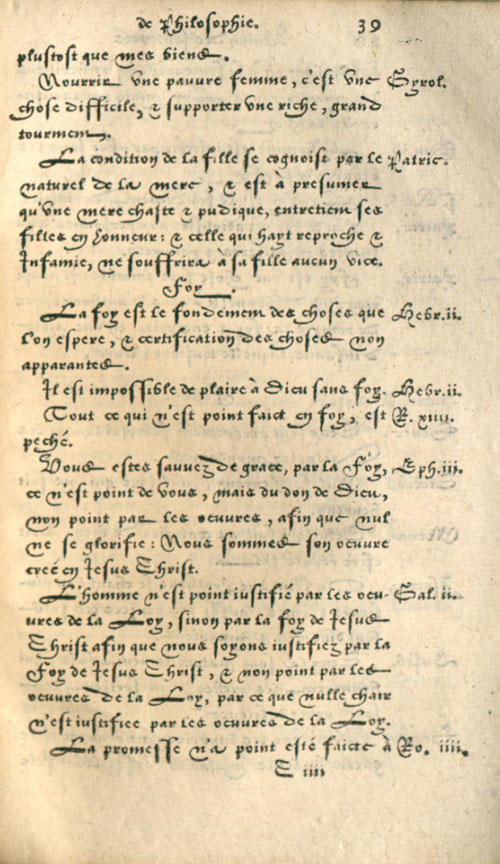 de Philosophie. 39
plustost que mes biens.
Nourrir vne pauure femme, c'est vne Gyrol.
chose difficile, & supporter vne riche, grand
tourment.
La condition de la fille se cognoist par le Patric.
naturel de la mere, & est à presumer
qu'vne mere chaste & pudique, entretient ses
filles en honneur: & celle qui hayt reproche &
Infamie, ne souffrira à sa fille aucun vice.
Foy.
La foy est le fondement des choses que Hebr.ii.
l'on espere, & certification des choses non
apparantes.
Il est impossible de plaire à Dieu sans foy. Hebr.ii.
Tout ce qui n'est point faict en foy, est R. xiiii.
peché.
Vous estes sauuez de grace, par la Foy, Eph.iii.
ce n'est point de vous, mais du don de Dieu,
non point par les oeuures, afin que nul
ne se glorifie: Nous sommes son oeuure
creé en Iesus Christ.
L'homme n'est point iustifié par les oeu- Gal. ii.
ures de la Loy, sinon par la foy de Iesus
Christ afin que nous soyons iustifiez par la
Foy de Iesus Christ, & non point par les
oeuures de la Loy, par ce que nulle chair
n'est iustifiee par les oeuures de la Loy.
La promesse n'a point esté faicte à Ro. iiii.
E iiii